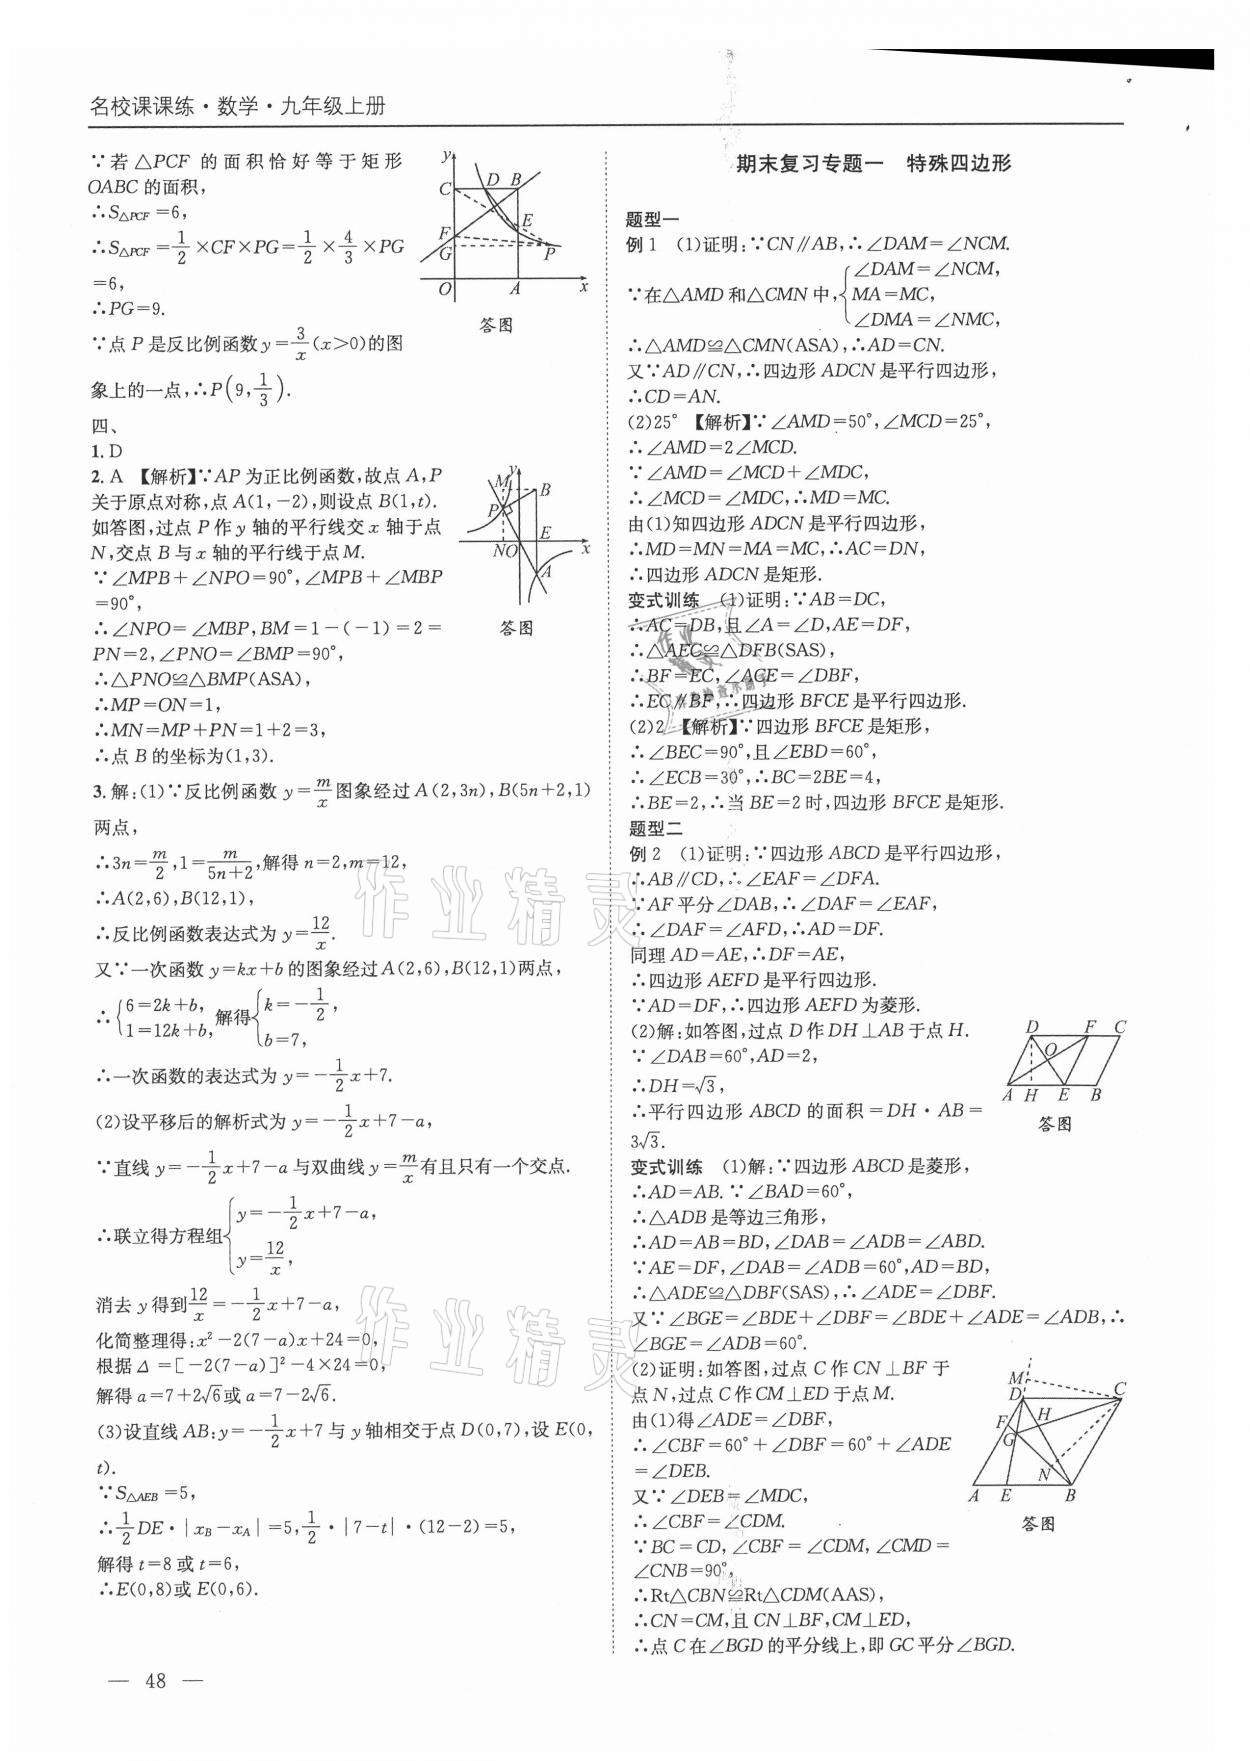 名校课课练·数学·九年级上册
∵若△PCF 的面积恰好等于矩形
OABC 的面积，
∴S△PCF=6，
∴S△PCF=1/2×CF×PG=1/2×4/3×PG
=6，
∴PG=9.
∵点 P 是反比例函数 y=3/x(x>0)的图
象上的一点，∴P(9，1/3).
y
C D B
E
F
G P
O A x
答图
四、
1. D
2. A 【解析】∵AP 为正比例函数，故点 A，P
关于原点对称，点 A(1，－2)，则设点 B(1，t).
如答图，过点 P 作 y 轴的平行线交 x 轴于点
N，交点 B 与 x 轴的平行线于点 M.
∵∠MPB+∠NPO=90°，∠MPB+∠MBP
=90°，
∴∠NPO=∠MBP，BM=1－(－1)=2=
PN=2，∠PNO=∠BMP=90°，
∴△PNO≌△BMP(ASA)，
∴MP=ON=1，
∴MN=MP+PN=1+2=3，
∴点 B 的坐标为(1，3).
y
M B
P
E
N O x
A
答图
3. 解：(1)∵反比例函数 y=m/x 图象经过 A(2，3n)，B(5n+2，1)
两点，
∴3n=m/2，1=m/(5n+2)，解得 n=2，m=12，
∴A(2，6)，B(12，1)，
∴反比例函数表达式为 y=12/x.
又∵一次函数 y=kx+b 的图象经过 A(2，6)，B(12，1)两点，
∴{6=2k+b，1=12k+b，解得{k=－1/2，b=7，
∴一次函数的表达式为 y=－1/2x+7.
(2)设平移后的解析式为 y=－1/2x+7－a，
∵直线 y=－1/2x+7－a 与双曲线 y=m/x 有且只有一个交点.
∴联立得方程组{y=－1/2x+7－a，y=12/x，
消去 y 得到12/x=－1/2x+7－a，
化简整理得：x²－2(7－a)x+24=0，
根据 Δ=[－2(7－a)]²－4×24=0，
解得 a=7+2√6或 a=7－2√6.
(3)设直线 AB：y=－1/2x+7 与 y 轴相交于点 D(0，7)，设 E(0，
t).
∵S△AEB=5，
∴1/2DE·|xB－xA|=5，1/2·|7－t|·(12－2)=5，
解得 t=8 或 t=6，
∴E(0，8)或 E(0，6).
期末复习专题一 特殊四边形
题型一
例 1 (1)证明：∵CN∥AB，∴∠DAM=∠NCM.
∵在△AMD 和△CMN 中，{∠DAM=∠NCM，
MA=MC，
∠DMA=∠NMC，
∴△AMD≌△CMN(ASA)，∴AD=CN.
又∵AD∥CN，∴四边形 ADCN 是平行四边形，
∴CD=AN.
(2)25° 【解析】∵∠AMD=50°，∠MCD=25°，
∴∠AMD=2∠MCD.
∵∠AMD=∠MCD+∠MDC，
∴∠MCD=∠MDC，∴MD=MC.
由(1)知四边形 ADCN 是平行四边形，
∴MD=MN=MA=MC，∴AC=DN，
∴四边形 ADCN 是矩形.
变式训练 (1)证明：∵AB=DC，
∴AC=DB，且∠A=∠D，AE=DF，
∴△AEC≌△DFB(SAS)，
∴BF=EC，∠ACE=∠DBF，
∴EC∥BF，∴四边形 BFCE 是平行四边形.
(2)2 【解析】∵四边形 BFCE 是矩形，
∴∠BEC=90°，且∠EBD=60°，
∴∠ECB=30°，∴BC=2BE=4，
∴BE=2，∴当 BE=2 时，四边形 BFCE 是矩形.
题型二
例 2 (1)证明：∵四边形 ABCD 是平行四边形，
∴AB∥CD，∴∠EAF=∠DFA.
∵AF 平分∠DAB，∴∠DAF=∠EAF，
∴∠DAF=∠AFD，∴AD=DF.
同理 AD=AE，∴DF=AE，
∴四边形 AEFD 是平行四边形.
∵AD=DF，∴四边形 AEFD 为菱形.
(2)解：如答图，过点 D 作 DH⊥AB 于点 H.
∵∠DAB=60°，AD=2，
∴DH=√3，
∴平行四边形 ABCD 的面积=DH·AB=
3√3.
D F C
O
A H E B
答图
变式训练 (1)解：∵四边形 ABCD 是菱形，
∴AD=AB. ∵∠BAD=60°，
∴△ADB 是等边三角形，
∴AD=AB=BD，∠DAB=∠ADB=∠ABD.
∵AE=DF，∠DAB=∠ADB=60°，AD=BD，
∴△ADE≌△DBF(SAS)，∴∠ADE=∠DBF.
又∵∠BGE=∠BDE+∠DBF=∠BDE+∠ADE=∠ADB，∴
∠BGE=∠ADB=60°.
(2)证明：如答图，过点 C 作 CN⊥BF 于
点 N，过点 C 作 CM⊥ED 于点 M.
由(1)得∠ADE=∠DBF，
∴∠CBF=60°+∠DBF=60°+∠ADE
=∠DEB.
又∵∠DEB=∠MDC，
∴∠CBF=∠CDM.
∵BC=CD，∠CBF=∠CDM，∠CMD=
∠CNB=90°，
∴Rt△CBN≌Rt△CDM(AAS)，
∴CN=CM，且 CN⊥BF，CM⊥ED，
∴点 C 在∠BGD 的平分线上，即 GC 平分∠BGD.
M
D C
F H
G
N
A E B
答图
作业精灵
作业精灵
— 48 —